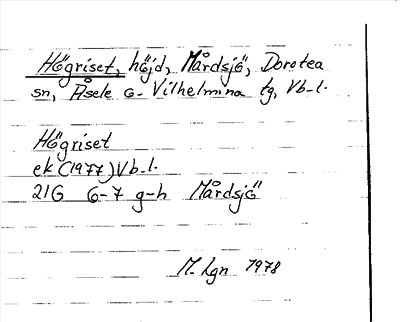 Högriset, höjd, Mårdsjö, Dorotea
sn, Åsele o. Vilhelmina tg, Vb-l.
Högriset
ek (1977) Vb-l.
21G 6-7 g-h Mårdsjö
M. Lgn 1978